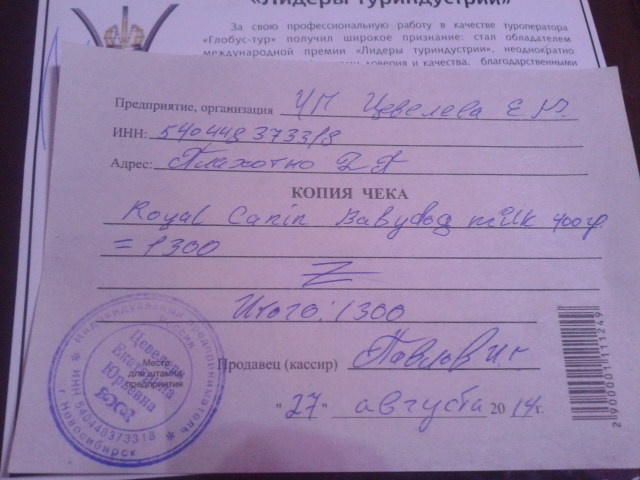 «Лидеры туриндустрии»
За свою профессиональную работу в качестве туроператора
«Глобус-тур» получил широкое признание: стал обладателем
международной премии «Лидеры туриндустрии», неоднократно
доверия и качества, благодарственными
Предприятие, организация ИП Цевелева Е.Ю.
ИНН: 540448373318
Адрес: Плахотно
КОПИЯ ЧЕКА
Royal Canin Babydog milk 400гр
= 1300
Z
Итого: 1300
Продавец (кассир) Павлов И.Г
"27" августа 2014г.
Место
для штампа
предприятия
Индивидуальный предприниматель
Россия
Цевелева
Екатерина
Юрьевна
* ИНН 540448373318 *
г. Новосибирск
2900001111249